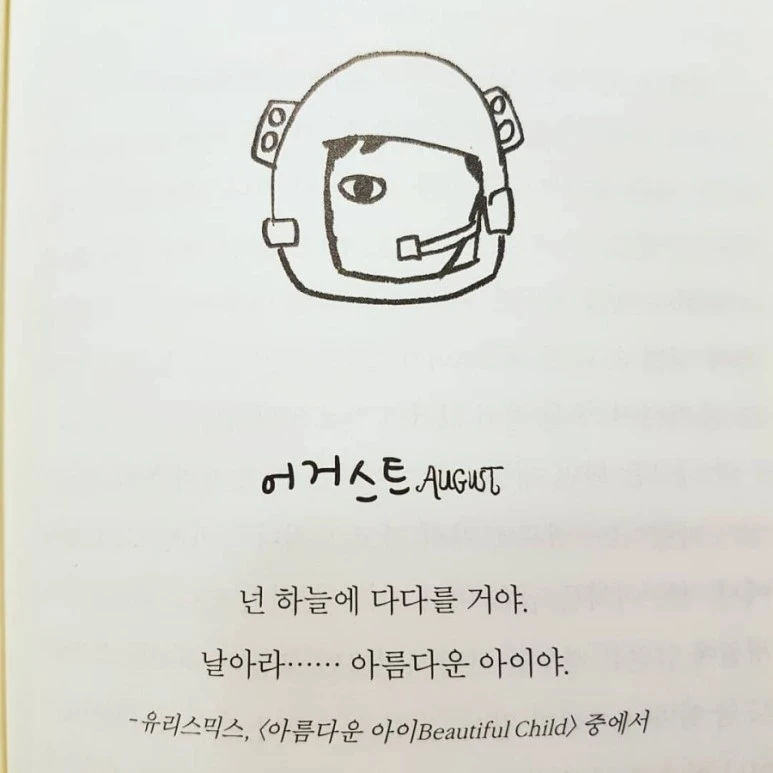 어거스트 AUGUST
넌 하늘에 다다를 거야.
날아라…… 아름다운 아이야.
-유리스믹스, 〈아름다운 아이Beautiful Child〉 중에서